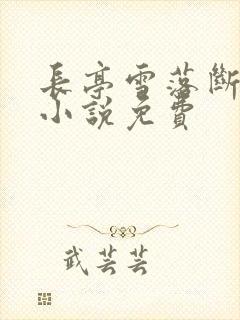 長亭雪落斷
小說免費
武芸芸